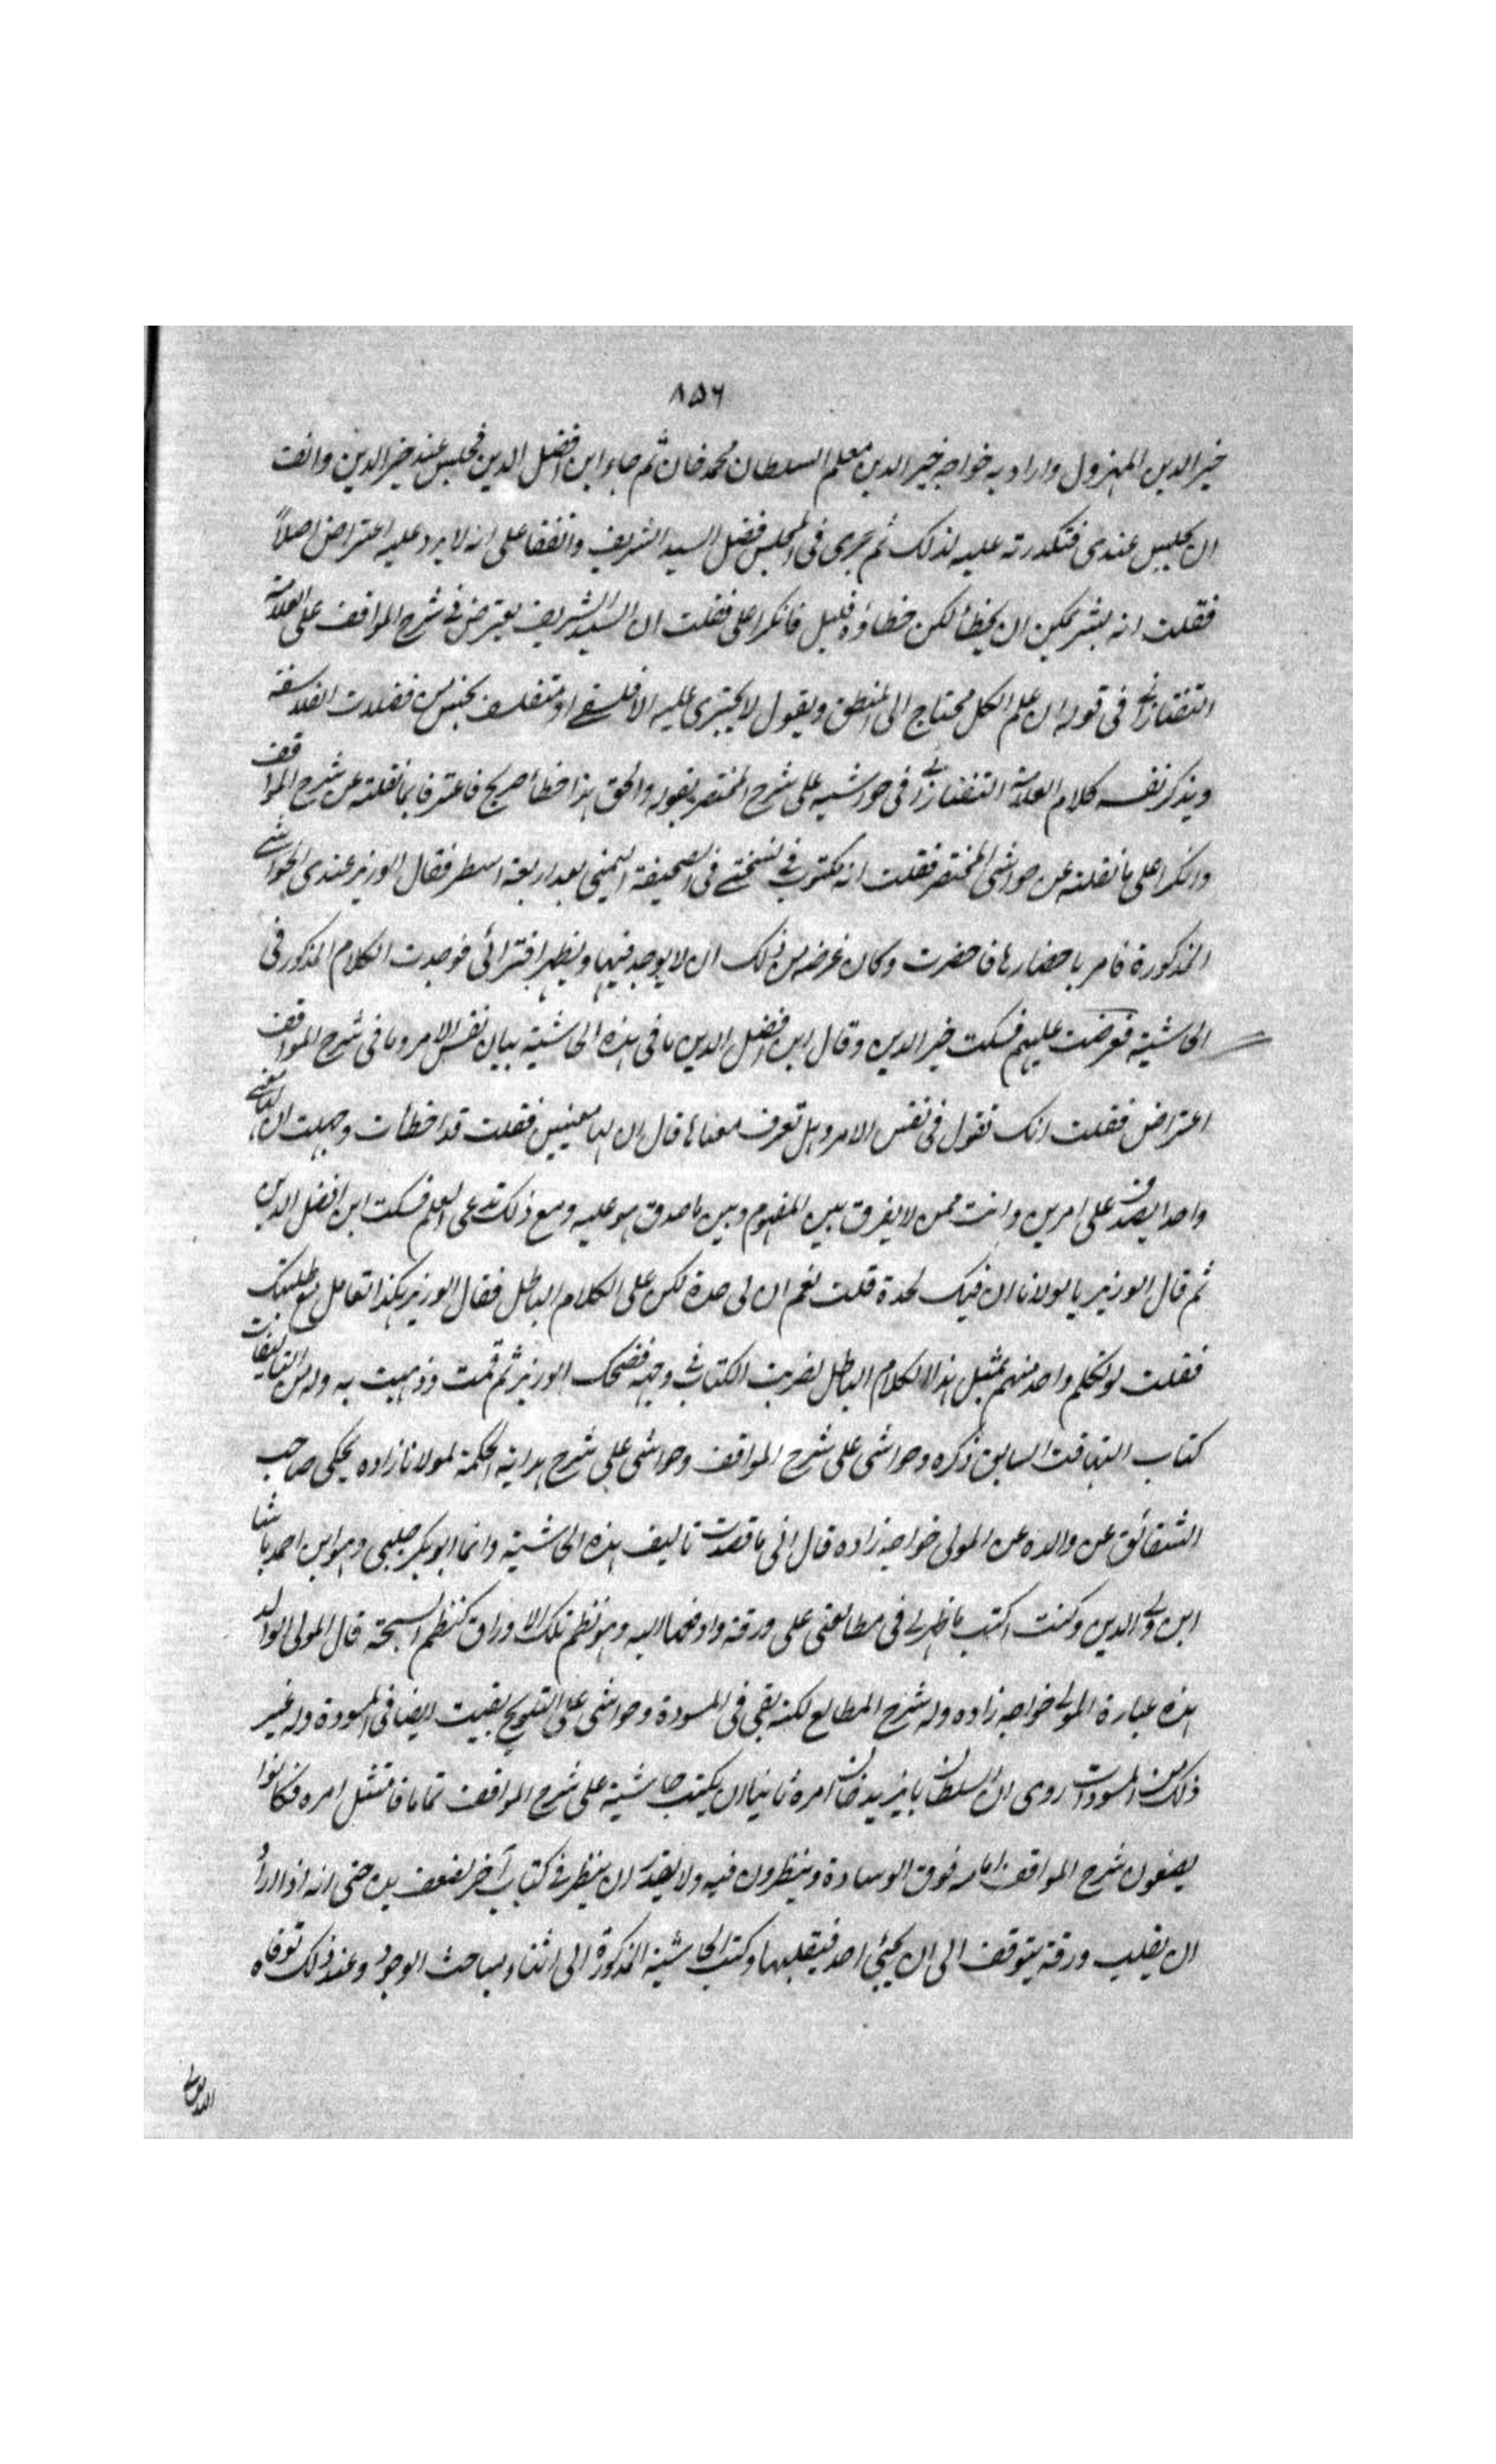 ٨٥٦
خير الدين المهزول واراد به خواجه خير الدين معلم السلطان محمد خان ثم جاء ابن افضل الدين فجلس عند خير الدين وانف
ان يجلس عندى فتكدرت عليه لذلك ثم جرى فى المجلس فضل السيد الشريف واتفقا على انه لا يرد عليه اعتراض اصلاً
فقلت انه بشر يمكن ان يخطأ لكن خطاؤه قليل فانكرا على فقلت ان السيد الشريف يعترض فى شرح المواقف على العلامة
التفتازانى فى قوله ان علم الكلام محتاج الى المنطق ويقول لا يجترى عليه الا فلسفى او متفلسف يلحس من فضلات الفلاسفة
ويذكر نفسه كلام العلامة التفتازانى فى حواشيه على شرح المختصر بقوله والحق هذا خطأ صريح فاعترفا بما نقلته عن شرح المواقف
وانكرا على ما نقلته عن حواشى المختصر فقلت انه مكتوب فى نسختى فى الصحيفة اليمنى بعد اربعة اسطر فقال الوزير عندى الحواشى
المذكورة فامر باحضارها فاحضرت وكان غرضه من ذلك ان لا يوجد فيها ويظهر افترائى فوجدت الكلام المذكور فى
الحاشية فعرضت عليهم فسكت خير الدين وقال ابن افضل الدين ما فى هذه الحاشية بيان نفس الامر وما فى شرح المواقف
اعتراض فقلت انك تقول فى نفس الامر وهل تعرف معناها قال ان لها معنيين فقلت قد اخطأت وجهلت ان لها معنى
واحدا يصدق على امرين وانت ممن لا يفرق بين المفهوم وبين ما صدق هو عليه ومع ذلك تدعى العلم فسكت ابن افضل الدين
ثم قال الوزير يا مولانا ان فيك لحدة قلت نعم ان لى حدة لكن على الكلام الباطل فقال الوزير هكذا تعامل مع طلبتك
فقلت لو تكلم واحد منهم بمثل هذا الكلام الباطل لضربت الكتاب فى وجهه فضحك الوزير ثم قمت وذهبت به وله من التاليفات
كتاب التهافت السابق ذكره وحواشى على شرح المواقف وحواشى على شرح هداية الحكمة لمولانا زاده يحكى صاحب
الشقائق عن والده عن المولى خواجه زاده قال انى ما قصدت تاليف هذه الحاشية وانما ابو بكر چلبى وهو ابن احمد پاشا
ابن ولى الدين وكنت اكتب ما ظهر لى فى مطالعتى على ورقة وادفعها اليه وهو نظم تلك الاوراق كنظم السبحة قال المولى الوالد
هذه عبارة المولى خواجه زاده وله شرح المطالع لكنه بقى فى المسودة وحواشى على التلويح بقيت ايضا فى المسودة وله غير
ذلك من المسودات روى ان السلطان بايزيد خان امره ثانيا ان يكتب حاشية على شرح المواقف تماما فامتثل امره فكانوا
يضعون شرح المواقف امامه فوق الوسادة وينظرون فيه ولا يقدر ان ينظر فى كتاب آخر لضعف يده حتى انه اذا اراد
ان يقلب ورقة يتوقف الى ان يجيئ احد فيقلبها وكتب الحاشية المذكورة الى اثناء مباحث الوجود وعند ذلك توفاه